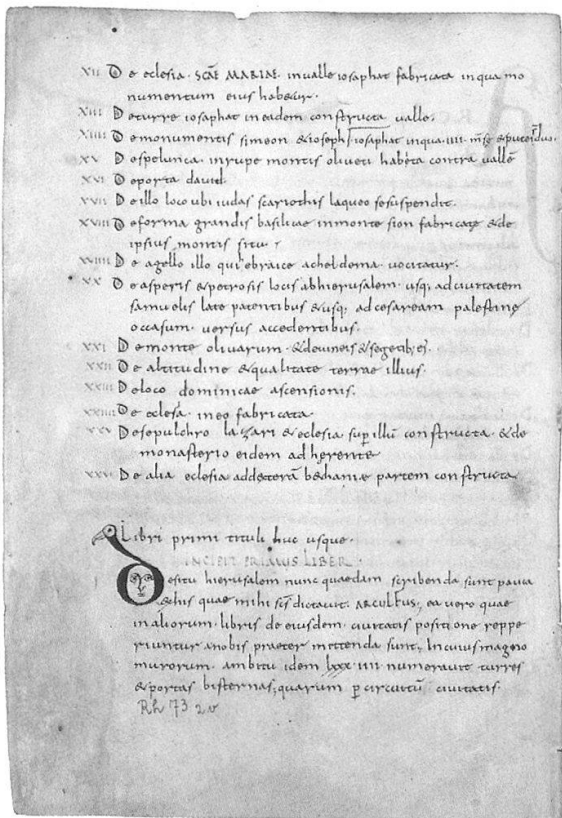 XII De eclesia · SCAE MARIAE · in valle iosaphat fabricata in qua mo
numentum eius habetur ·
XIII De turre iosaphat in eadem constructa valle ·
XIIII De monumentis simeon & ioseph
XV De spelunca in rupe montis oliveti habeta contra vallē
iosaphat in qua · IIII · mēsę & putei duo ·
XVI De porta david
XVII De illo loco ubi iudas scariothis laqueo se suspendit ·
XVIII De forma grandis basilicae in monte sion fabricatę & de
ipsius montis situ ·
XVIIII De agello illo qui ebraice acheldema vocitatur ·
XX De asperis & petrosis locis ab hierusalem · usq; ad civitatem
samuelis late patentibus & usq; ad cesaream palestinę
occasum · versus accedentibus ·
XXI De monte olivarum · & de vineis & segetib; ei;
XXII De altitudine & qualitate terrae illius
XXIII De loco dominicae ascensionis ·
XXIIII De eclesa · in eo fabricata
XXV De sepulchro lazari & eclesia sup illū constructa · & de
monasterio eidem adherente
XXVI De alia eclesia ad dexterā bethaniae partem constructa
Libri primi tituli huc usque ·
INCIPIT PRIMUS LIBER
De situ hierusalem nunc quaedam scribenda sunt pauca
ex his quae mihi scs dictavit · ARCULFUS; ea vero quae
in aliorum · libris de eiusdem · civitatis positione reppe
riuntur a nobis praetermittenda sunt; In cuius magno
murorum · ambitu idem lxxx · IIII numeravit turres
& portas bis ternas; quarum p circuitū civitatis
Rh 73 2v